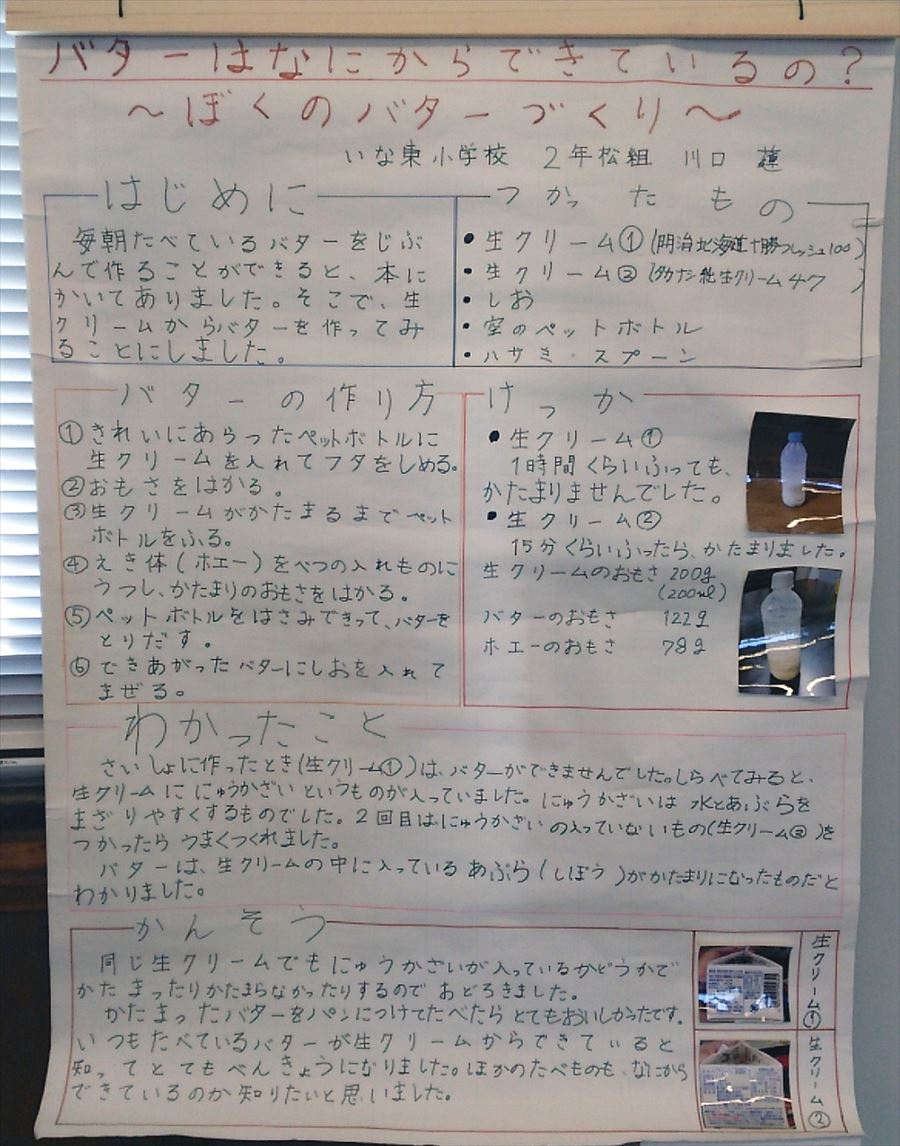 バターはなにからできているの?
～ぼくのバターづくり～
いな東小学校 2年松組 川口 蓮
はじめに
毎朝たべているバターをじぶ
んで作ることができると、本に
かいてありました。そこで、生
クリームからバターを作ってみ
ることにしました。
つかったもの
・生クリーム①(明治北海道十勝フレッシュ100)
・生クリーム②(タカナシ純生クリーム47)
・しお
・空のペットボトル
・ハサミ・スプーン
バターの作り方
①きれいにあらったペットボトルに
生クリームを入れてフタをしめる。
②おもさをはかる。
③生クリームがかたまるまでペット
ボトルをふる。
④えき体(ホエー)をべつの入れものに
うつし、かたまりのおもさをはかる。
⑤ペットボトルをはさみできって、バターを
とりだす。
⑥できあがったバターにしおを入れて
まぜる。
けっか
・生クリーム①
1時間くらいふっても、
かたまりませんでした。
・生クリーム②
15分くらいふったら、かたまりました。
生クリームのおもさ 200g
(200ml)
バターのおもさ 122g
ホエーのおもさ 78g
わかったこと
さいしょに作ったとき(生クリーム①)は、バターができませんでした。しらべてみると、
生クリームににゅうかざいというものが入っていました。にゅうかざいは水とあぶらを
まざりやすくするものでした。2回目はにゅうかざいの入っていないもの(生クリーム②)を
つかったらうまくつくれました。
バターは、生クリームの中に入っているあぶら(しぼう)がかたまりになったものだと
わかりました。
かんそう
同じ生クリームでもにゅうかざいが入っているかどうかで
かたまったりかたまらなかったりするのでおどろきました。
かたまったバターをパンにつけてたべたらとてもおいしかったです。
いつもたべているバターが生クリームからできていると
知ってとてもべんきょうになりました。ほかのたべものも、なにから
できているのか知りたいと思いました。
生クリーム①
生クリーム②